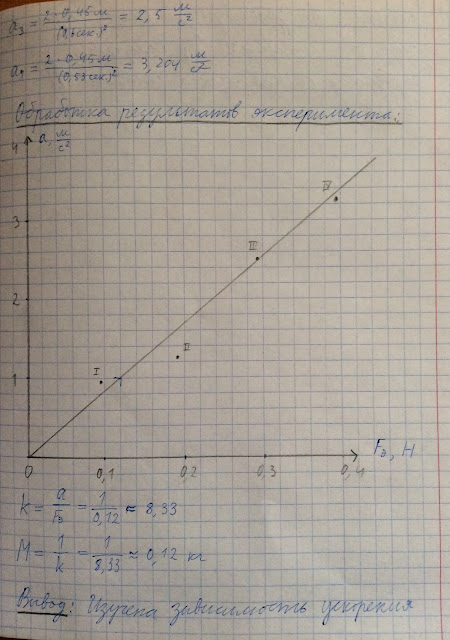 a₃ = 2·0,45м / (0,6сек.)² = 2,5 м/с²
a₄ = 2·0,45м / (0,53сек)² = 3,204 м/с²
Обработка результатов эксперимента:
4 a, м/с²
IV
3
III
2
II
I
1
0 0,1 0,2 0,3 0,4 Fд, Н
k = a/Fд = 1/0,12 ≈ 8,33
M = 1/k = 1/8,33 ≈ 0,12 кг
Вывод: Изучена зависимость ускорения